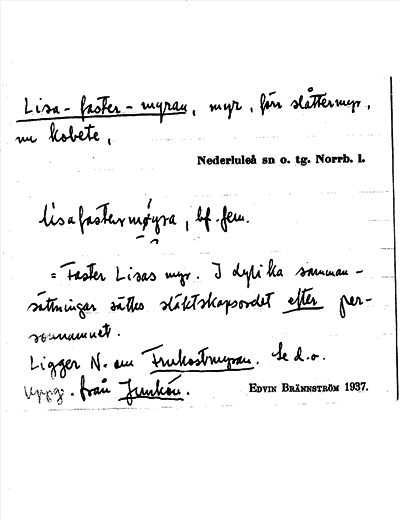 Lisa-faster-myran, myr, förr slåttermyr,
nu kobete,
Nederluleå sn o. tg. Norrb. l.
lisafastermøyra, bf. fem.
= Faster Lisas myr. I dylika samman-
sättningar sättes släktskapsordet efter per-
sonnamnet.
Ligger N. om Frukostmyran. Se d.o.
Uppg. från Junkön.
EDVIN BRÄNNSTRÖM 1937.